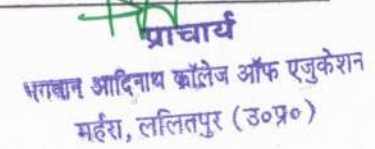 प्राचार्य
भगवान आदिनाथ कॉलेज ऑफ एजुकेशन
महॅरा, ललितपुर (उ०प्र०)